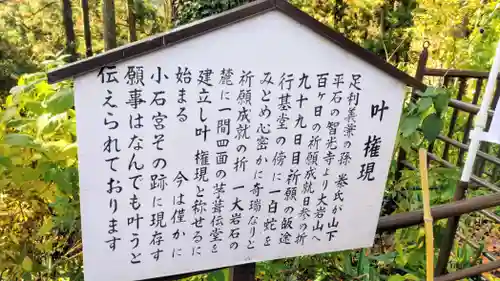 叶権現
足利義兼の孫 泰氏が山下
平石の智光寺より大岩山へ
百ヶ日の祈願成就日参の折
九十九日目祈願の飯途
行基堂の傍に一白蛇を
みとめ心密かに奇瑞なりと
祈願成就の折 一大岩石の
麓に一間四面の茅葺伝堂を
建立し叶 権現と称せるに
始まる 今は僅かに
小石宮その跡に現存す
願事はなんでも叶うと
伝えられております